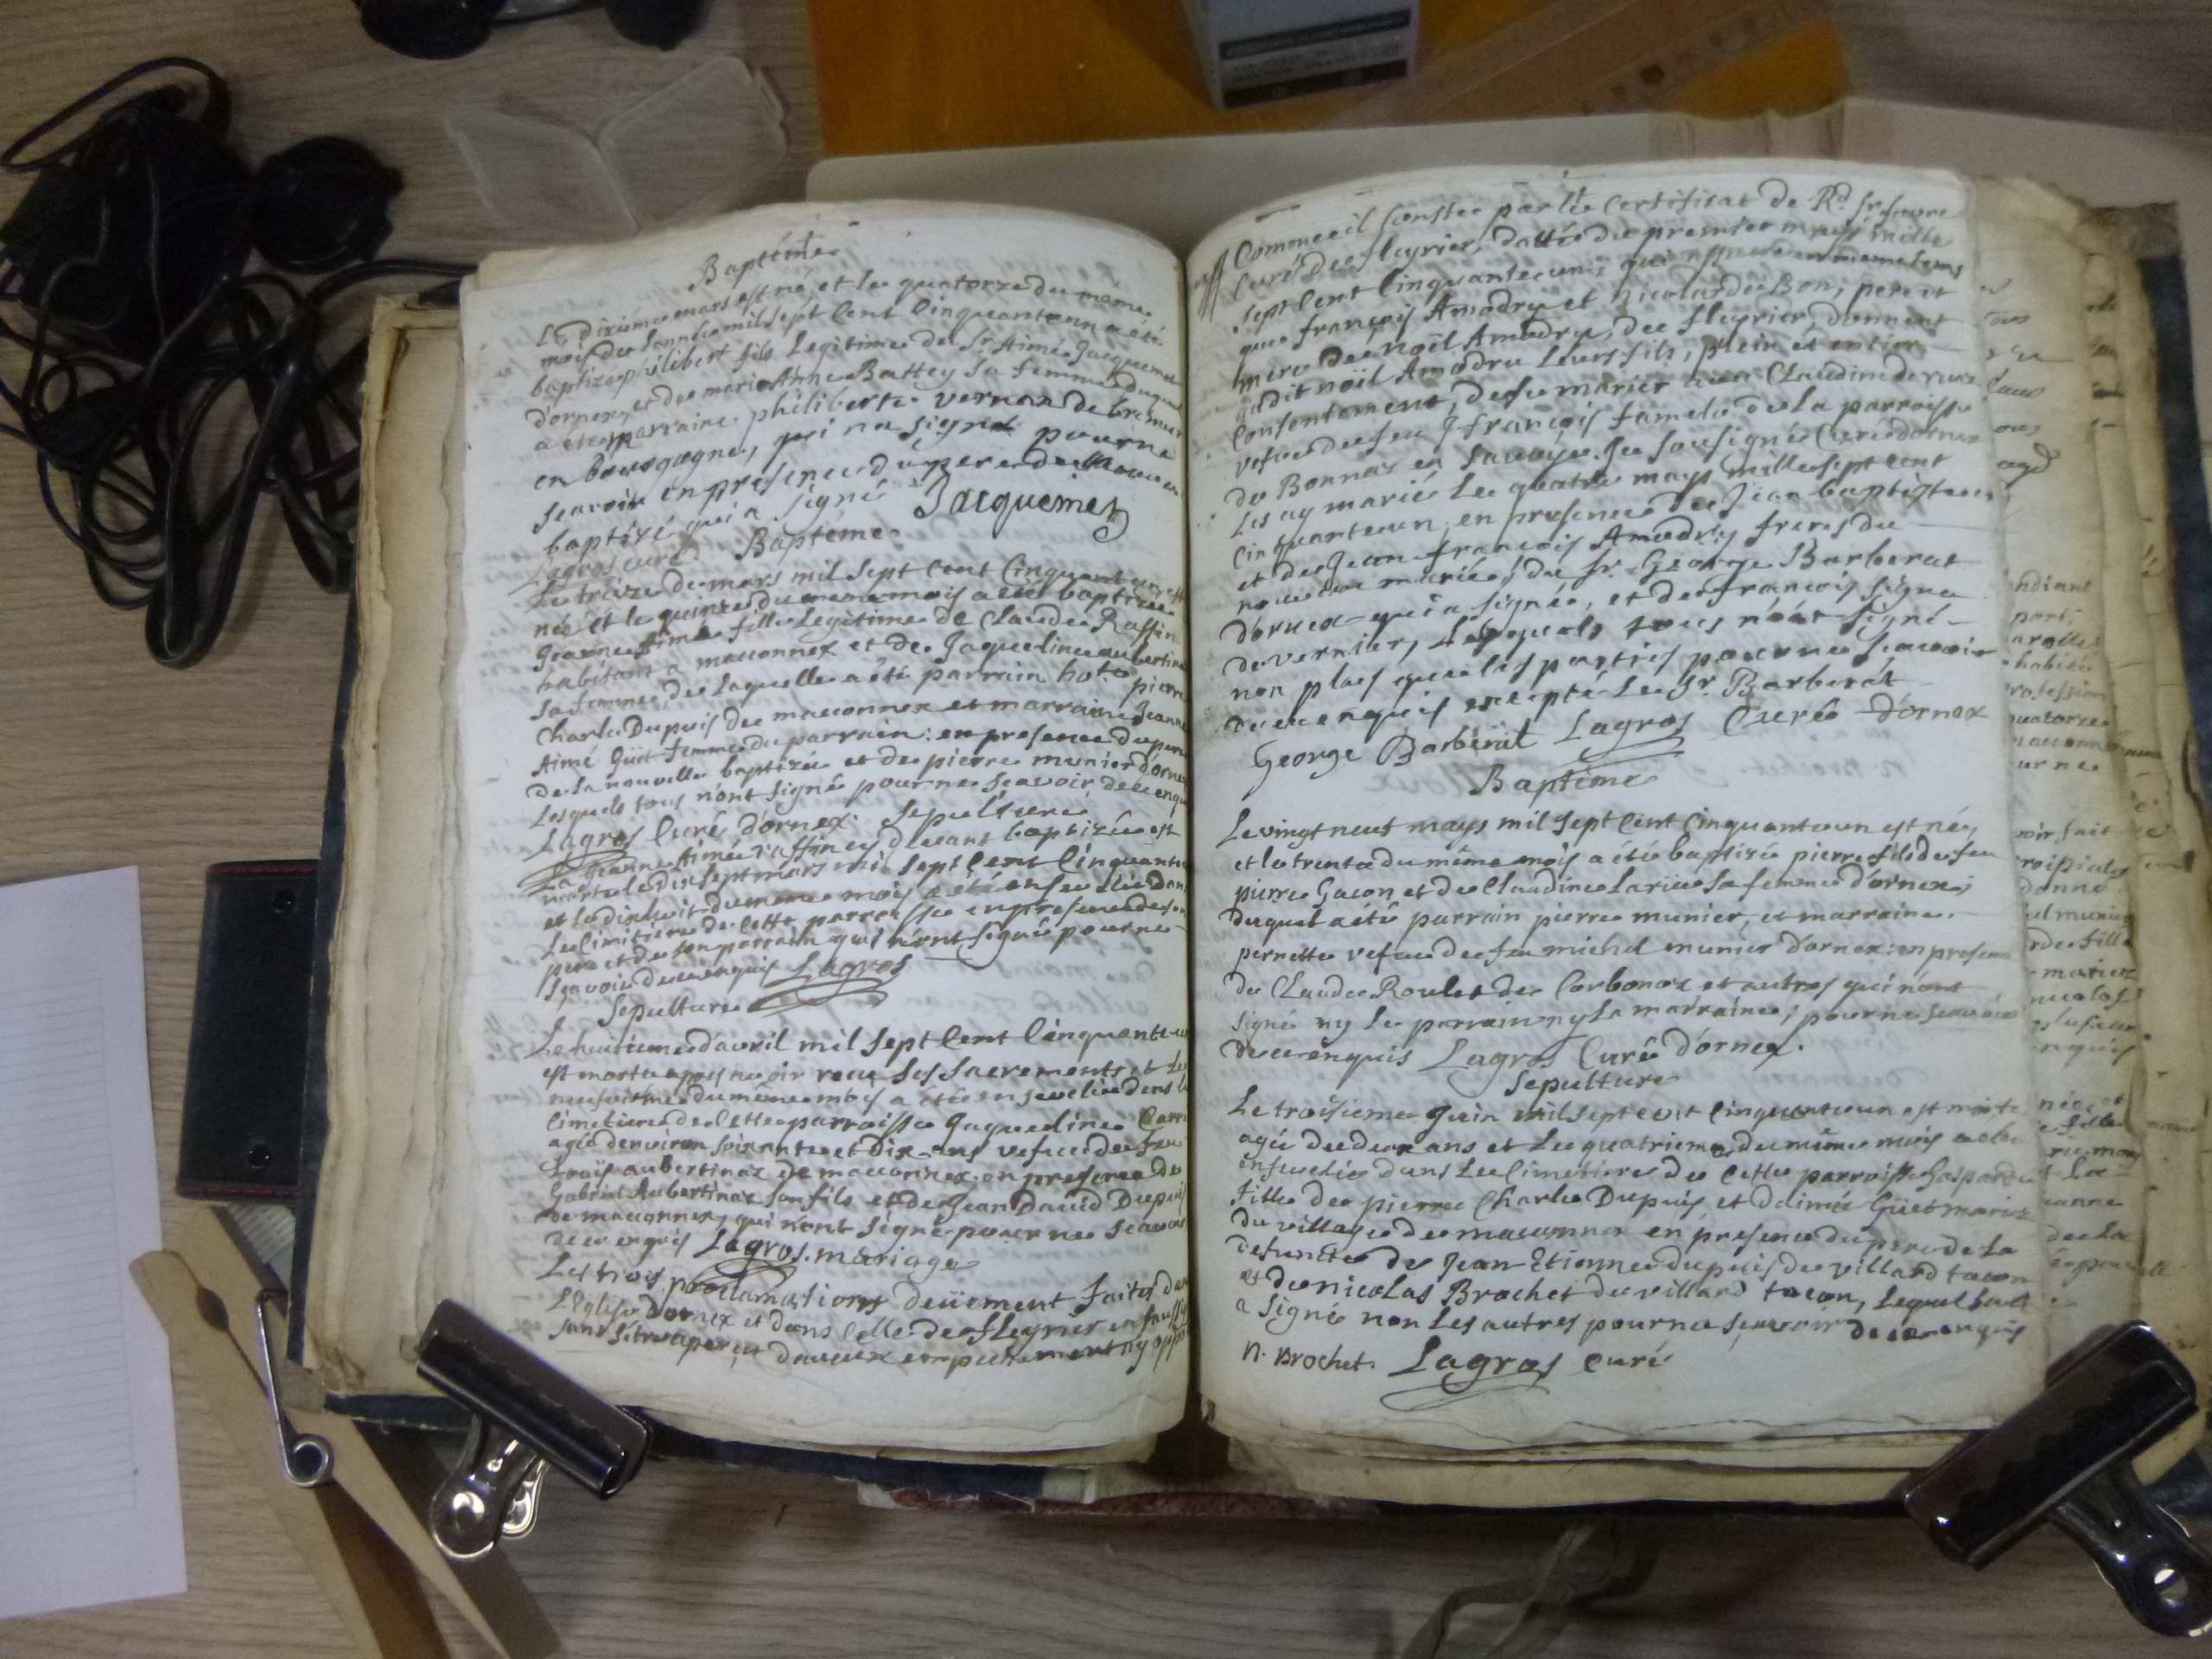 Baptéme
Le dixiéme mars est né et le quatorze du même
mois de l'année mil sept cent cinquante un a été
baptizé philibert fils legitime de Sr. Aimé Jacquemet
d'ornex, et de marie Anne Battey sa femme duquel
a été marraine philiberte vernan de
en bourgogne, qui na signé pour ne
scavoir en presence du pere de
baptizé qui a signé Jacquemet
Lagros curé. Baptéme
Le treize de mars mil sept cent cinquante un est
née et le quinze du mois a été baptizée
Jeanne Aimée fille legitime de Claude Raffin
habitant a maconnex et de Jaqueline aubertinaz
sa femme, de laquelle a été parrain pierre
Charle Dupuis de maconnex et marraine Jeanne
Aimé Güet femme du parrain: en presence du pere
de la nouvelle baptizée et de pierre munier d'ornex
lesquels tous n'ont signé pour ne scavoir de ce enquis
Lagros Curé d'ornex. Sepulture
La Jeanne Aimée Raffin cy devant baptizée est
morte le dix sept mars mil sept cent cinquante
et le dixhuit du meme mois a été ensevelie dans
le cimitiere de cette parroisse en presence de son
pere et de son parrain qui n'ont signé pour ne
scavoir de ce enquis Lagros
Sepulture
Le huitieme d'avril mil sept cent cinquante un
est morte apres avoir receu ses sacrements et le
neufvième du même mois a été ensevelie dans le
cimetiere de cette parroisse Jaqueline
agée d'environ soixante et dix ans vefve de feu
Loüis aubertinaz de maconnex en presence de
Gabriel Aubertinaz son fils et de Jean David Dupuis
de maconnex, qui n'ont signé pour ne scavoir
de ce enquis Lagros. mariage
Les trois proclamations deüement faites dans
L'Eglise d'ornex et dans celle de fleyrier
sans s'être aperçu d'aucun empechement ny
Comme il conste par le certificat de Rd. Sr. favre
curé de fleyrier, datté du premier mays mille
sept cent cinquante un qui assure en meme tems
que françois Amodry et nicolarde Bon, pere et
mere de noël Amodry, de fleyrier, donnent
audit noël Amodru leurs fils, plein et entier
consentement, de se marier avec Claudine
vefve de feu J. françois de la parroisse
de Bonnaz en Savoye. Je soussigné Curé d'ornex
les ay marié le quatre mays mille sept cent
cinquante un, en presence de Jean baptiste
et de Jean françois Amodry freres du
nouveau marié; du Sr. George Barberat
d'ornex qui a signé, et de françois signa
de vernier, lesquels tous n'ont signé
non plus que les parties pour ne scavoir
de ce enquis excepté le Sr. Barberat
George Barberat Lagros Curé d'ornex
Baptéme
Le vingt neuf mays mil sept cent cinquante un est né,
et le trente du même mois a été baptizé pierre fils de feu
pierre Gacon et de Claudine Lariüe sa femme d'ornex;
duquel a été parrain pierre munier, et marraine
pernette vefve de feu michel munier d'ornex: en presence
de Claude Roulet de Corbonaz et autres qui n'ont
signé ny le parrain ny la marraine, pour ne scavoir
de ce enquis Lagros Curé d'ornex.
Sepulture
Le troisieme Juin mil sept cent cinquante un est morte
agée de deux ans et le quatrieme du même mois a été
ensevelie dans le cimetiere de cette parroisse Gasparde
fille de pierre Charle Dupuis, et d'Aimée Güet mariez
du village de maconnex en presence du pere de la
defuncte de Jean Etienne dupuis de villard tacon
et de nicolas Brochet de villard tacon, lequel seul
a signé non les autres pour ne scavoir de ce enquis
N. Brochet. Lagros curé